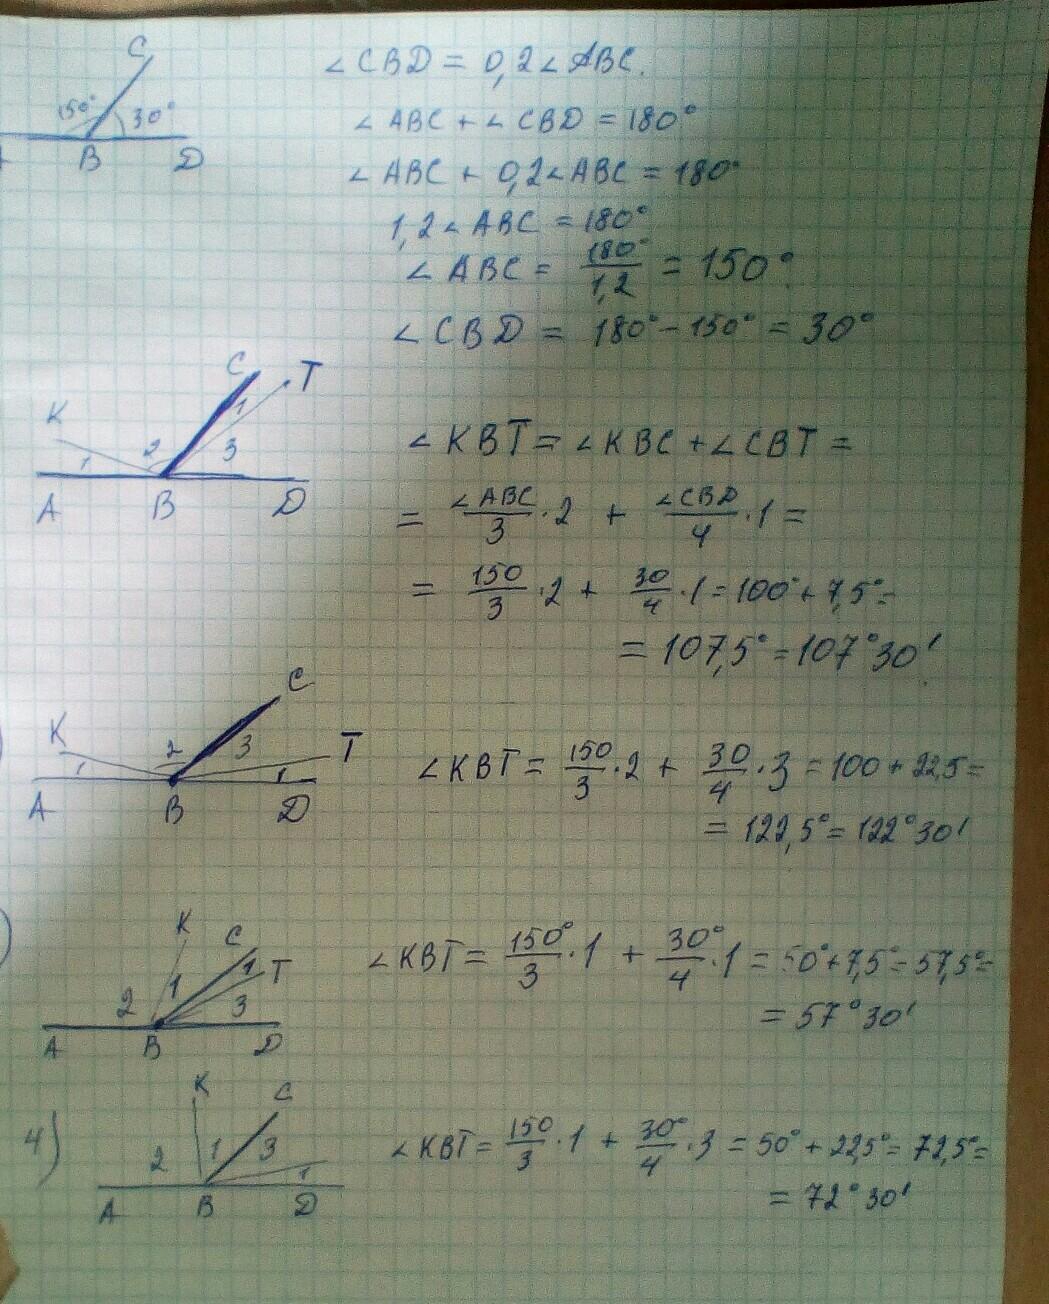 C
150° 30°
B D
∠CBD = 0,2∠ABC.
∠ABC + ∠CBD = 180°
∠ABC + 0,2∠ABC = 180°
1,2∠ABC = 180°
∠ABC = 180°/1,2 = 150°.
∠CBD = 180° - 150° = 30°
C T
K 1
1 2 3
A B D
∠KBT = ∠KBC + ∠CBT =
= ∠ABC/3 · 2 + ∠CBD/4 · 1 =
= 150/3 · 2 + 30/4 · 1 = 100° + 7,5° =
= 107,5° = 107°30′.
C
K 2 3 T
1 1
A B D
∠KBT = 150/3 · 2 + 30/4 · 3 = 100 + 22,5 =
= 122,5° = 122°30′
K C
1 1 T
2 3
A B D
∠KBT = 150°/3 · 1 + 30°/4 · 1 = 50° + 7,5° = 57,5° =
= 57°30′
4)
K C
2 1 3 1
A B D
∠KBT = 150/3 · 1 + 30°/4 · 3 = 50° + 22,5° = 72,5° =
= 72°30′